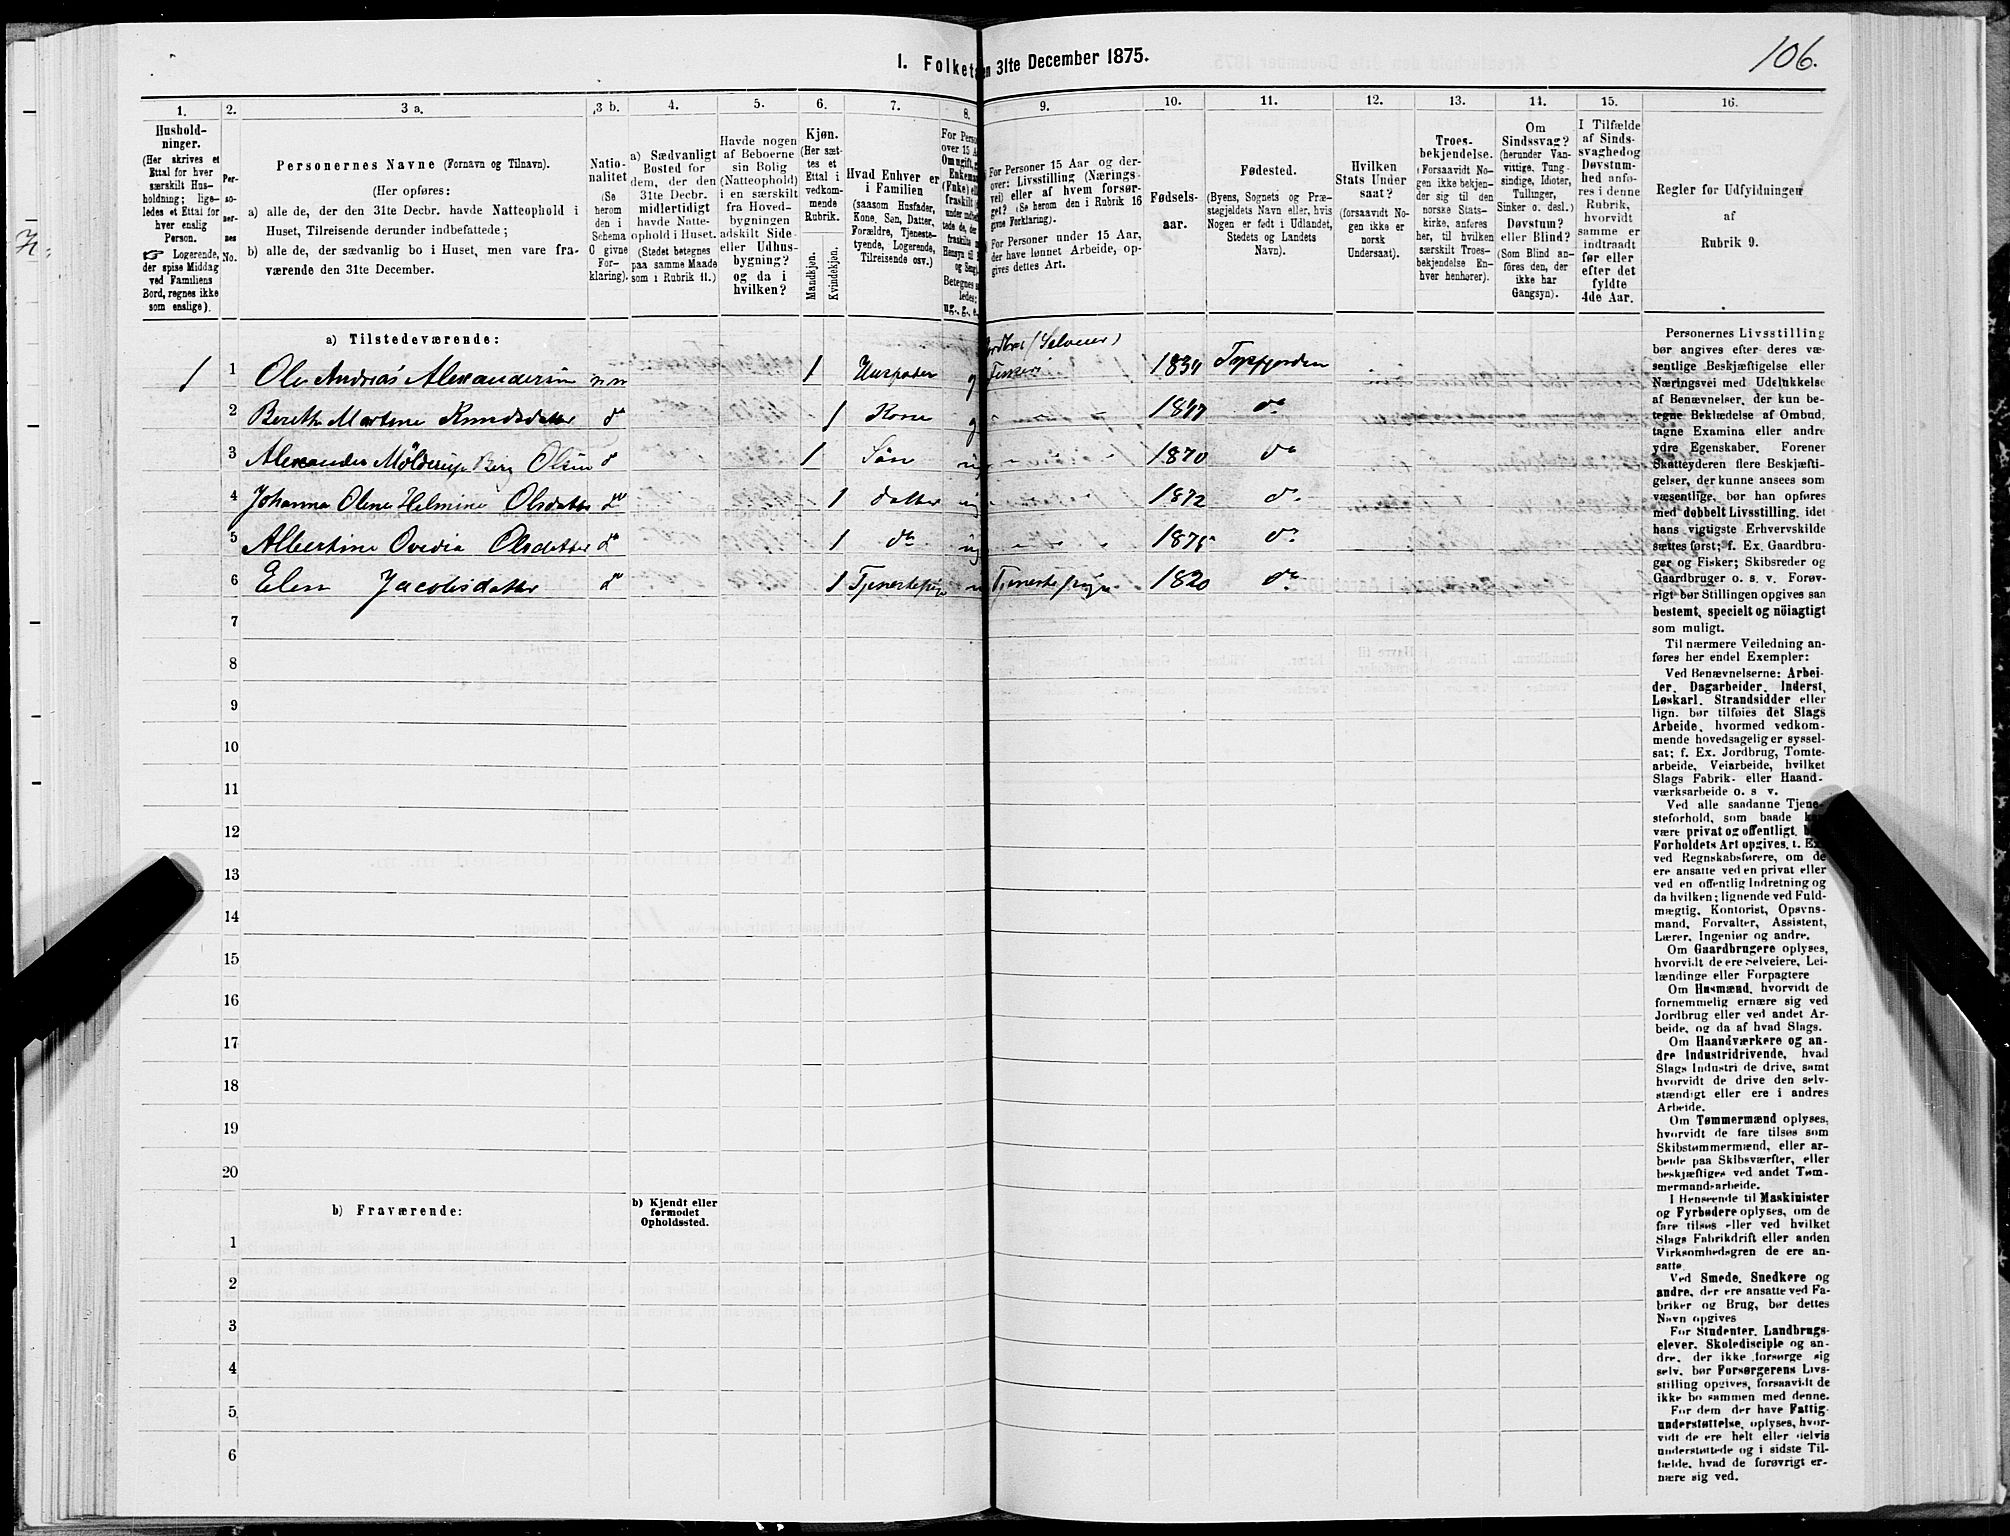 106.
1. Folket en 31te December 1875.
1.
2.
3 a.
3 b.
4.
5.
6.
7.
8.
9.
10.
11.
12.
13.
14.
15.
16.
Hushold-
ninger.
(Her skrives et
Ettal for hver
særskilt Hus-
holdning; lige-
ledes et Ettal for
hver enslig
Person.
☞ Logerende,
der spise Middag
ved Familiens
Bord, regnes ikke
som enslige).
Per-
so-
ner-
nes
No.
Personernes Navne (Fornavn og Tilnavn).
(Her opføres:
a) alle de, der den 31te Decbr. havde Natteophold i
Huset, Tilreisende derunder indbefattede;
b) alle de, der sædvanlig bo i Huset, men vare fra-
værende den 31te December.
Natio-
nalitet
(Se
herom
den i
Schema
G givne
For-
klaring).
a) Sædvanligt
Bosted for
dem, der den
31te Decbr.
midlertidigt
havde Natte-
ophold i Huset.
(Stedet betegnes
paa samme Maade
som i Rubrik 11.)
Havde nogen
af Beboerne
sin Bolig
(Natteophold)
i en særskilt
fra Hoved-
bygningen
adskilt Side-
eller Udhus-
bygning?
og da i
hvilken?
Kjøn.
(Her sæt-
tes et
Ettal i
vedkom-
mende
Rubrik.
Mandkjøn.
Kvindekjøn.
Hvad Enhver er
i Familien
(saasom Husfader,
Kone, Søn, Datter,
Forældre, Tjeneste-
tyende, Logerende,
Tilreisende osv.)
For Perso
over 15 A
Om ugift, g
Enkema
(Fnke) ell
fraskilt
ledes:
ug., g., e.
For Personer 15 Aar og der-
over: Livsstilling (Nærings-
vei) eller af hvem forsør-
get? (Se herom den i Rubrik 16
givne Forklaring).
For Personer under 15 Aar,
der have lønnet Arbeide, op-
gives dettes Art.
Fødsels-
aar.
Fødested.
(Byens, Sognets og Præ-
stegjeldets Navn eller, hvis
Nogen er født i Udlandet,
Stedets og Landets
Navn).
Hvilken
Stats Under
saat?
(forsaavidt No-
gen ikke er
norsk
Undersaat).
Troes-
bekjendelse.
(Forsaavidt No-
gen ikke bekjen-
der sig til den
norske Stats-
kirke, anføres
her, til hvilken
særskilt Troes-
bekjendelse En-
hver henhører).
Om
Sindssvag?
(herunder Van-
vittige, Tung-
sindige, Idioter,
Tullinger,
Sinker o. desl.)
Døvstum?
eller Blind?
(Som Blind an-
føres den, der
ikke har
Gangsyn).
I Tilfælde
af Sinds-
svaghed og
Døvstum-
hed anfø-
res i denne
Rubrik,
hvorvidt
samme er
indtraadt
før eller
efter det
fyldte
4de Aar.
Regler for Udfyldningen
af
Rubrik 9.
a) Tilstedeværende:
(Selveier)
1 1 Ole Andreas Alexandersen nn 1 Husfader g Fisker 1834
2 Bereth Martine Knudsdatter do 1 Kone g 1847 do
3 Alexander Mölderup Berg Olsen d 1 Sön ug 1870 do
4 Johanna Oline Helmine Olsdatter do 1 datter ug 1872 do
5 Albertine Ovedia Olsdatter do 1 do ug 1875 do
6 Elen Jacobsdatter do 1 Tjenestepige Tjenestepige 1820 do
7
8
9
10
11
12
13
14
15
16
17
18
19
20
b) Fraværende:
b) Kjendt eller
formodet
Opholdssted.
1
2
3
4
5
6
Personernes Livsstilling
bør angives efter deres væ-
sentlige Beskjæftigelse eller
Næringsvei med Udelukkelse
af Benævnelser, der kun be-
tegne Beklædelse af Ombud,
tagne Examina eller andre
ydre Egenskaber. Forener
Skatteyderen flere Beskjæfti-
gelser, der kunne ansees som
væsentlige, bør han opføres
med dobbelt Livsstilling, idet
hans vigtigste Erhvervskilde
sættes først; f. Ex. Gaardbru-
ger og Fisker; Skibsreder og
Gaardbruger o. s. v. Forøv-
rigt bør Stillingen opgives saa
bestemt, specielt og nöiagtigt
som muligt.
Til nærmere Veiledning an-
føres her endel Exempler:
Ved Benævnelserne: Arbei-
der, Dagarbeider, Inderst,
Løskarl, Strandsidder eller
lign. bør tilføies det Slags
Arbeide, hvormed vedkom-
mende hovedsagelig er syssel-
sat; f. Ex. Jordbrug, Tomte-
arbeide, Veiarbeide, hvilket
Slags Fabrik- eller Haand-
værksarbeide o. s. v.
Ved alle saadanne Tjene-
steforhold, som baade kan
være privat og offentligt,
Forholdets Art opgives. f. Ex.
ved Regnskabsførere, om de
ere ansatte ved en privat eller
ved en offentlig Indretning og
da hvilken; lignende ved Fuld-
mægtig, Kontorist, Opsyns-
mand, Forvalter, Assistent,
Lærer, Ingeniør og andre.
Om Gaardbrugere oplyses,
hvorvidt de ere Selveiere, Lei-
lændinge eller Forpagtere
Om Husmænd, hvorvidt de
fornemmelig ernære sig ved
Jordbrug eller ved andet Ar-
beide, og da af hvad Slags.
Om Haandværkere og an-
dre Industridrivende, hvad
Slags Industri de drive, samt
hvorvidt de drive den selv-
stændigt eller ere i andres
Arbeide.
Om Tømmermænd oplyses,
hvorvidt de fare tilsøs som
Skibstømmermænd, eller ar-
beide paa Skibsværfter, eller
beskjæftiges ved andet Tøm-
mermandsarbeide.
I Henseende til Maskinister
og Fyrbødere oplyses, om de
fare tilsøs eller ved hvilket
Slags Fabrikdrift eller anden
Virksomhedsgren de ere an-
satte.
Ved Smede, Snedkere og
andre, der ere ansatte ved Fa-
briker og Brug, bør dettes
Navn opgives
For Studenter, Landbrugs-
elever, Skoledisciple og an-
dre, der ikke forsørge sig
selv, bør Forsørgerens Livs-
stilling opgives, forsaavidt de
ikke bo sammen med denne.
For dem, der have Fattig-
understøttelse, oplyses, hvor-
vidt de ere helt eller delvis
understøttede og i sidste Til-
fælde, hvad de forøvrigt er-
nære sig ved.